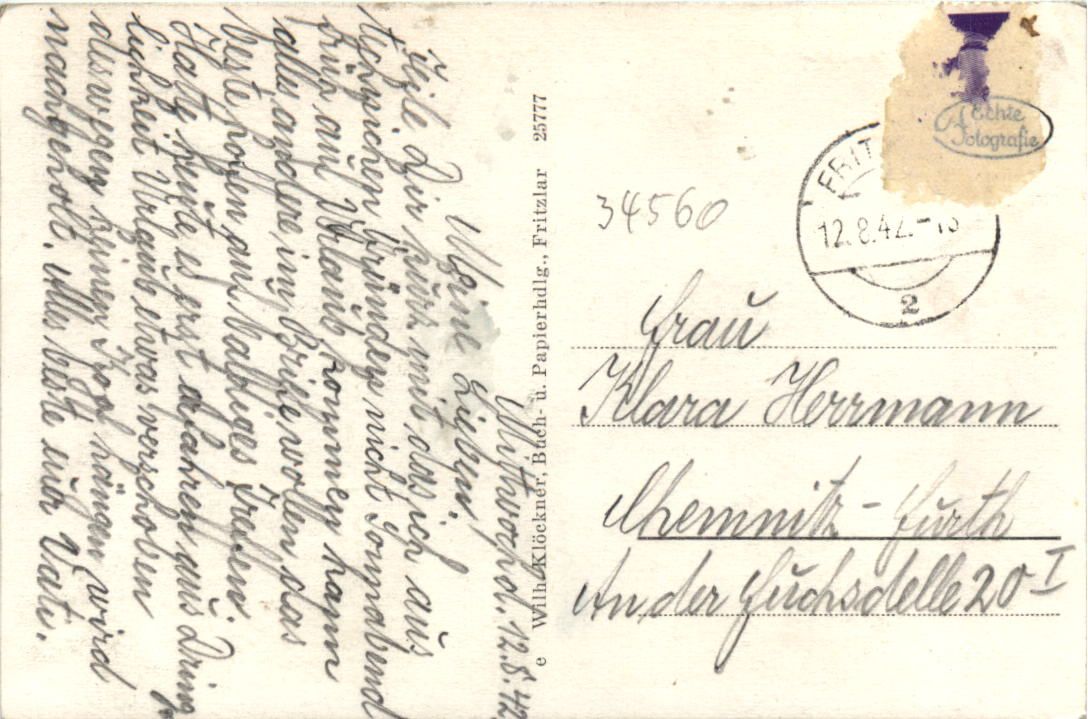 Mittwoch d. 12.8.42
Meine Lieben,
Teile Dir kurz mit das ich aus
technischen Gründen nicht Sonnabend
früh auf Urlaub kommen kann
alles andere im Briefe, wollen das
beste hoffen auf baldiges Treffen.
Hatte heute es erst erfahren aus Dring
lichkeit Urlaub etwas verschoben
deswegen keinen hängen wird
nachgeholt. Alles beste euer Vati.
e Wilh. Klöckner, Buch- u. Papierhdlg., Fritzlar 25777
Echte
Fotografie
FRIT
12.8.42.-
2
34560
Frau
Klara Herrmann
Chemnitz - Furth
An der Fuchsdelle 20 I